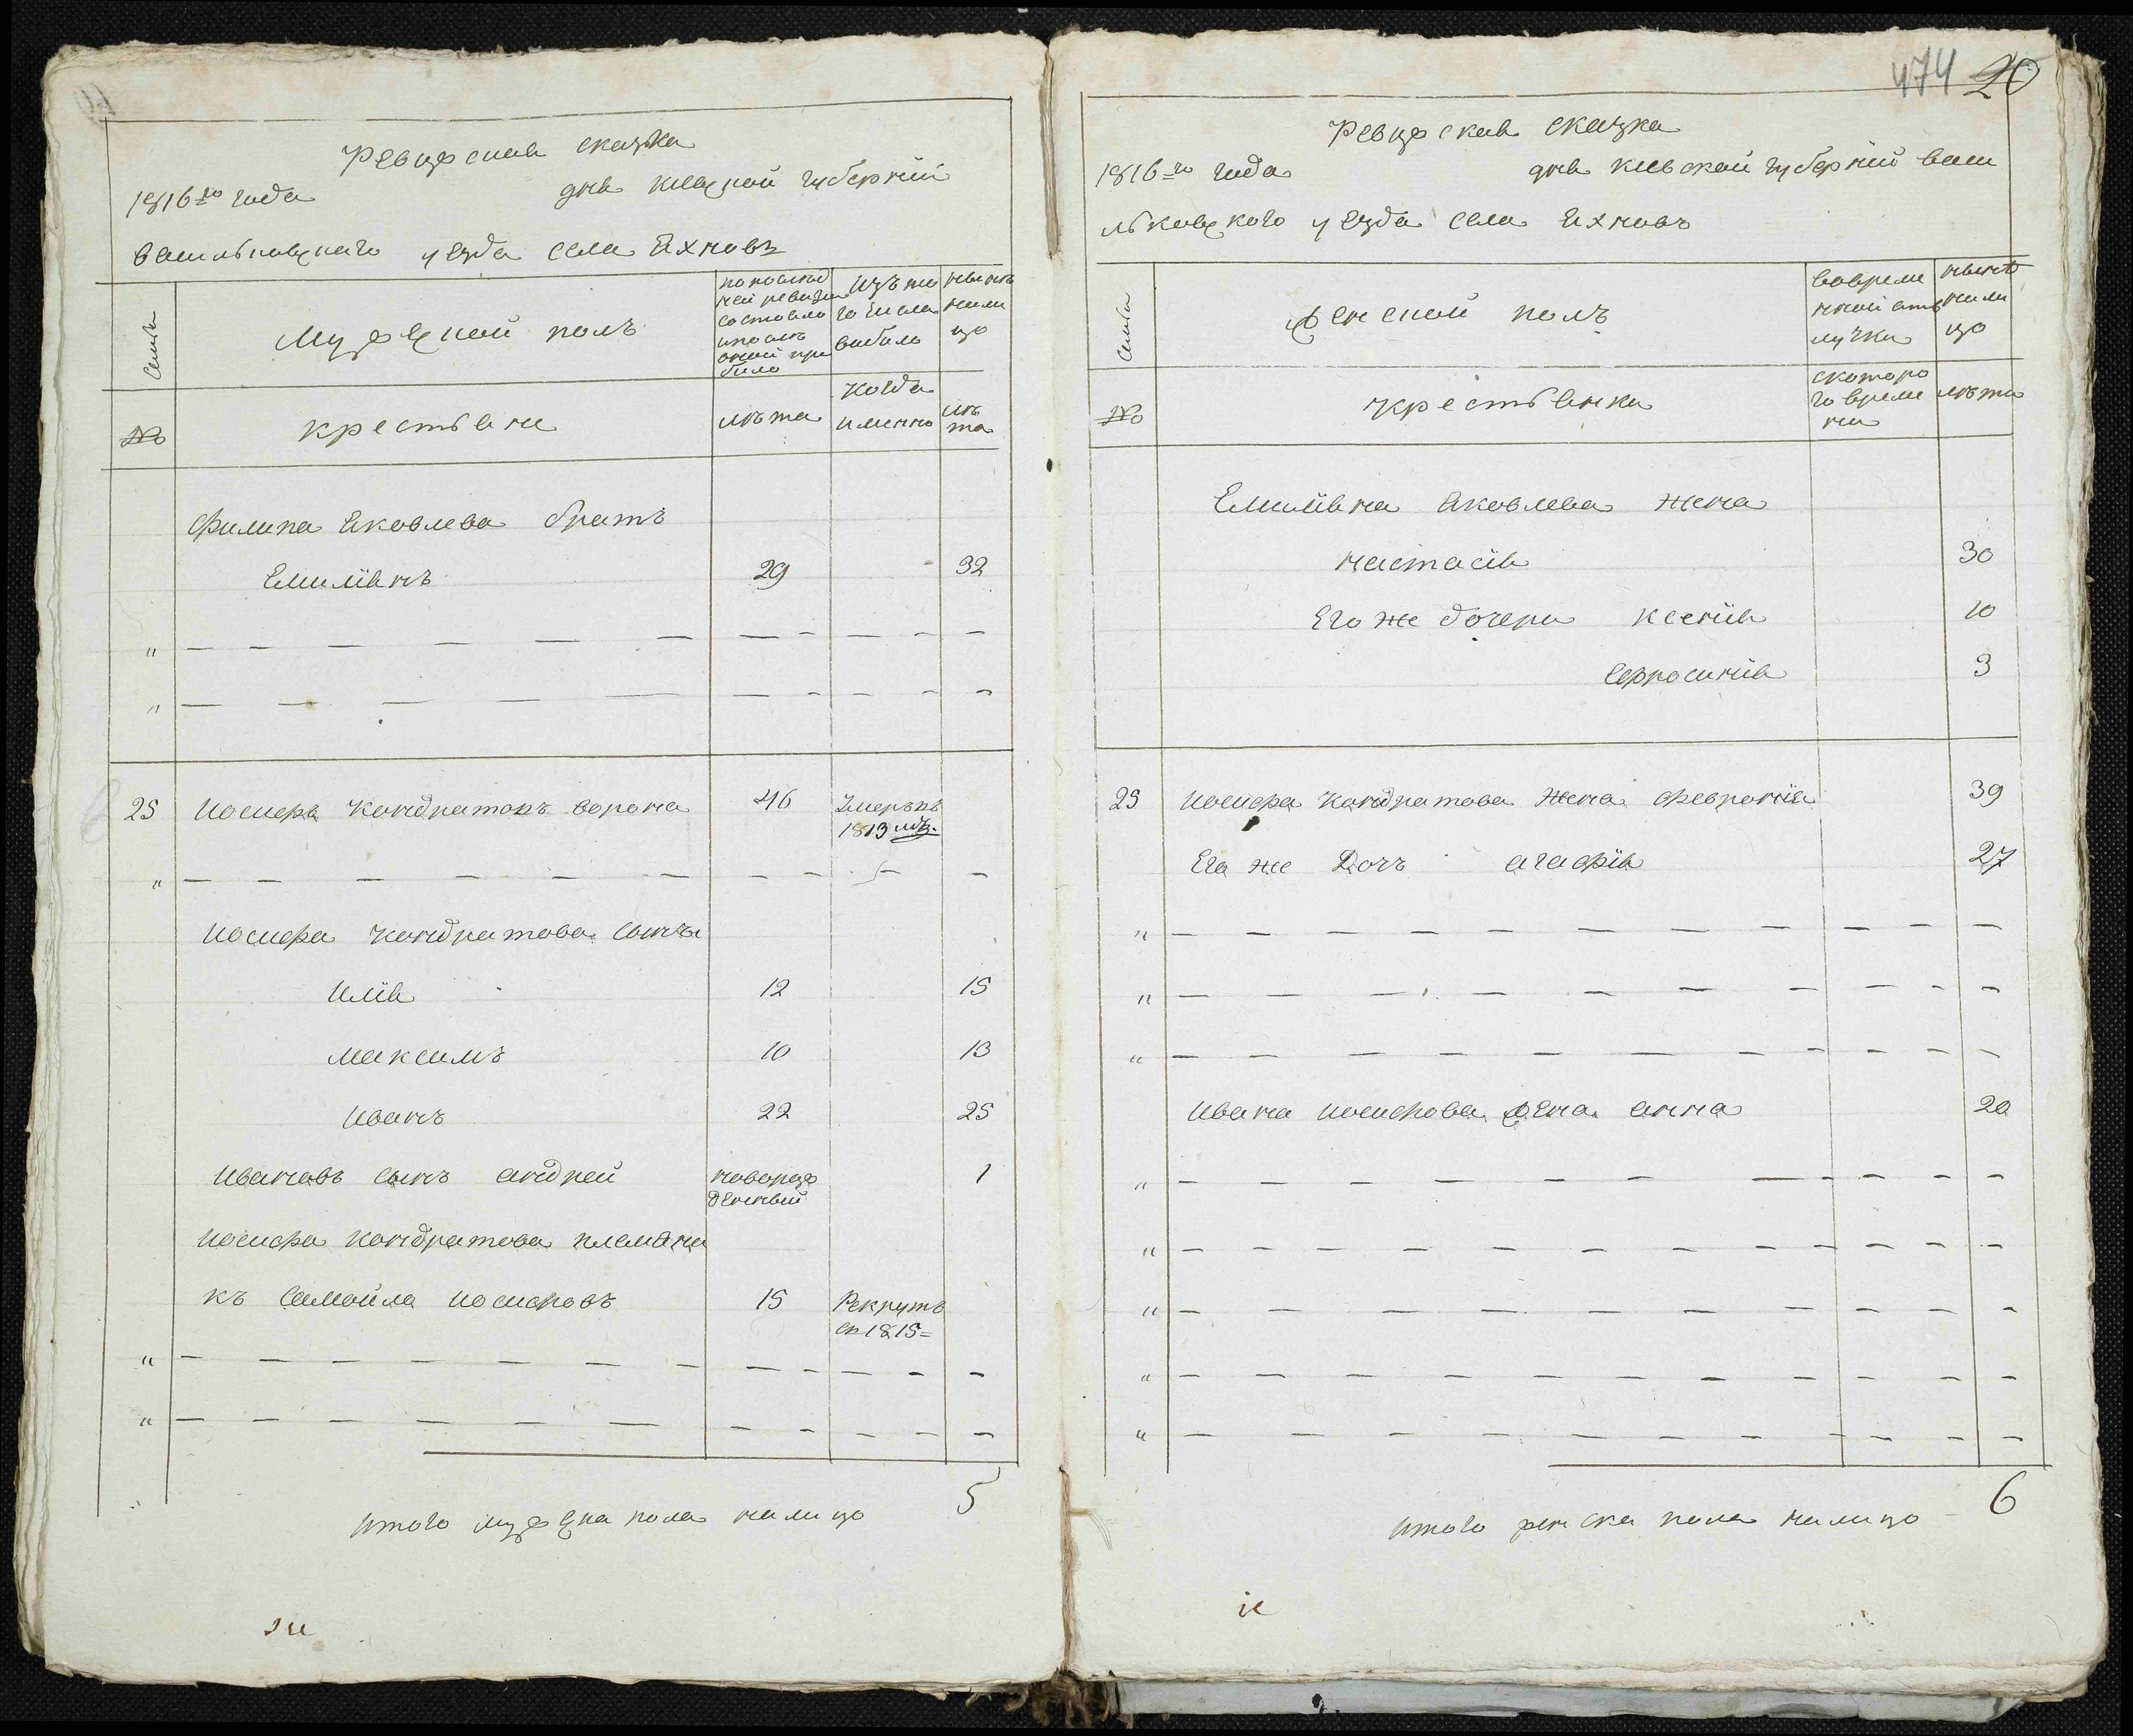 Ревизская сказка
1816го года дня киевской губерний
васильковского уезда села Яхновъ
Семьи
Мужеской полъ
по последней ревизии состояло и после оной прибило
Изъ того числа выбило
ныне на лицо
№
крестьяне
лета
Когда именно
лета
Филипа Яковлева братъ
Емилиянъ 29 32
"
"
25 Иосифъ Кондратовъ ворона 46 Умеръ въ
1813
"
Иосифа Кондратова сыны
Илия 12 15
Максимъ 10 13
Иванъ 22 25
Ивановъ сынъ андрей новорож
денный 1
Иосифа Кондратова племяни
къ Самойла Иосифовъ 15 Рекрутъ
въ 1815
"
"
Итого мужеска пола налицо 5
474 20
Ревизская сказка
1816го года дня киевской губерний васи
льковского уезда села Яхновъ
Семьи
Женской полъ
во временной отлучки
ныне на лицо
№
крестьянки
с которого времени
лета
Емилияна Яковлева жена
настасия 30
Его же дочери ксения 10
Ефросиния 3
25 Иосифа Кондратова жена феврония 39
Его же Дочъ агафия 27
"
"
"
Ивана Иосифова жена анна 20
"
"
"
"
"
Итого женска пола налицо 6